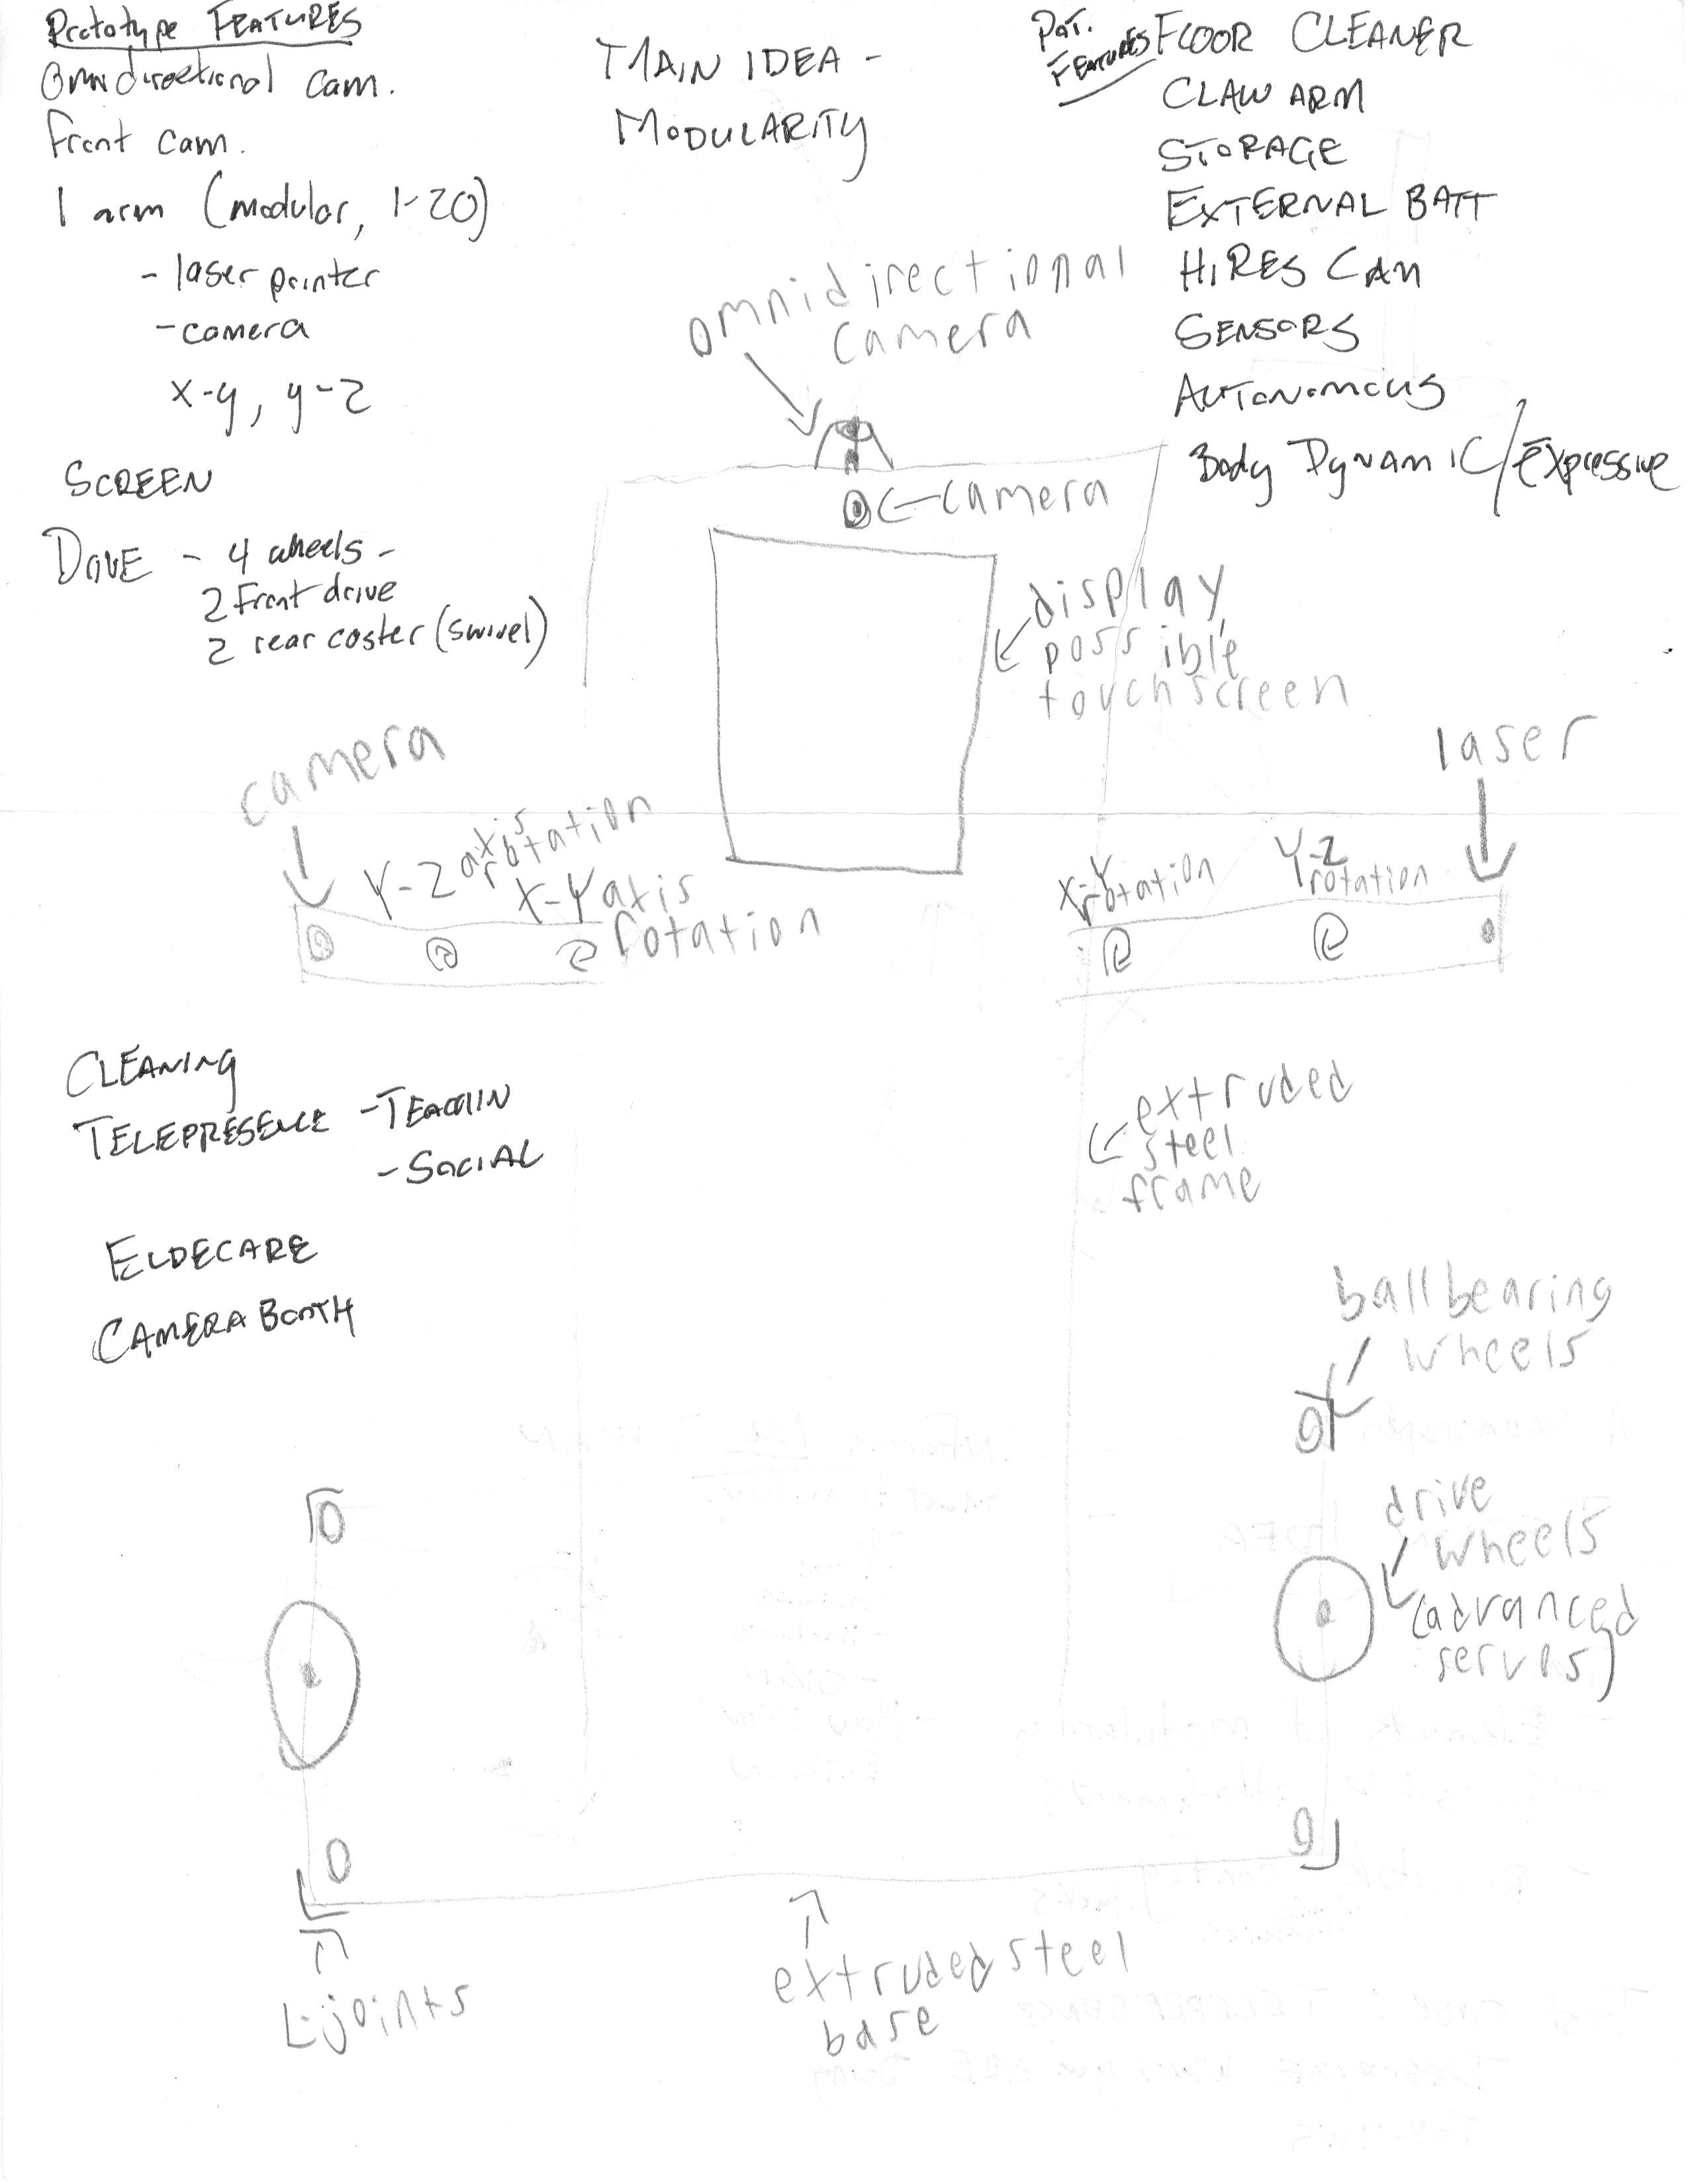 Prototype FEATURES
Omnidirectional cam.
Front cam.
1 arm (modular, 1-20)
- laser pointer
- camera
x-y, y-z
SCREEN
DRIVE - 4 wheels -
2 front drive
2 rear caster (swivel)
MAIN IDEA -
MODULARITY
POT.
FEATURES
FLOOR CLEANER
CLAW ARM
STORAGE
EXTERNAL BATT
HIRES CAM
SENSORS
AUTONOMOUS
Body DYNAMIC/Expressive
omnidirectional
camera
camera
display,
possible
touchscreen
camera
Y-Z axis
rotation
X-Y axis
rotation
X-Y
rotation
Y-Z
rotation
laser
CLEANING
TELEPRESENCE - TEACHIN
- SOCIAL
ELDECARE
CAMERA BOOTH
extruded
steel
frame
ball bearing
wheels
drive
wheels
(advanced
servos)
L-joints
extruded steel
base